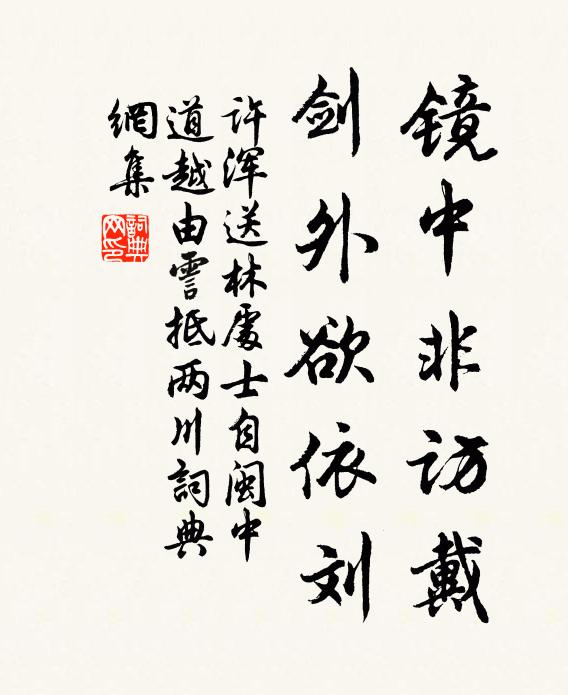 镜中非访戴
剑外欲依刘
许浑送林處士自闽中
道越由霅抵两川詞典
網集
詞典网印